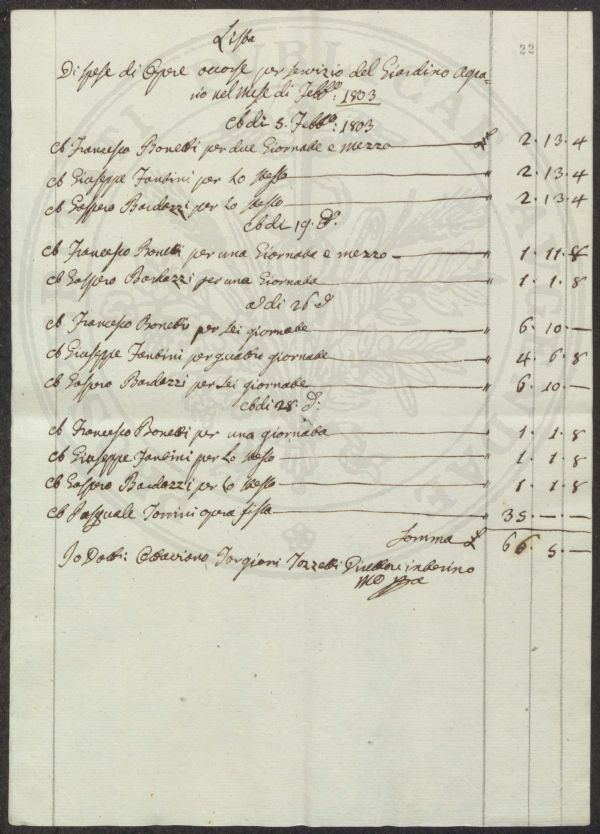 Lista
22
Di spese di Opere occorse per servizio del Giardino Agra=
rio nel Mese di Febb.º: 1803
A di 5. Febb.º: 1803
A Francesco Bonetti per due Giornate e mezzo £ 2. 13. 4
A Giuseppe Fantini per lo stesso " 2. 13. 4
A Gaspero Bardazzi per lo stesso " 2. 13. 4
A di 19. d.º:
A Francesco Bonetti per una Giornata e mezzo " 1. 11. 8
A Gaspero Bardazzi per una Giornata " 1. 1. 8
A di 26 d.º
A Francesco Bonetti per sei giornate " 6. 10. —
A Giuseppe Fantini per quattro giornate " 4. 6. 8
A Gaspero Bardazzi per sei giornate " 6. 10. —
A di 28. d.º:
A Francesco Bonetti per una giornata " 1. 1. 8
A Giuseppe Fantini per lo stesso " 1. 1. 8
A Gaspero Bardazzi per lo stesso " 1. 1. 8
A Pasquale Tonini opera fissa " 35. — . —
Somma £ 66. 5. —
Io Dott: Ottaviano Targioni Tozzetti Direttore interino